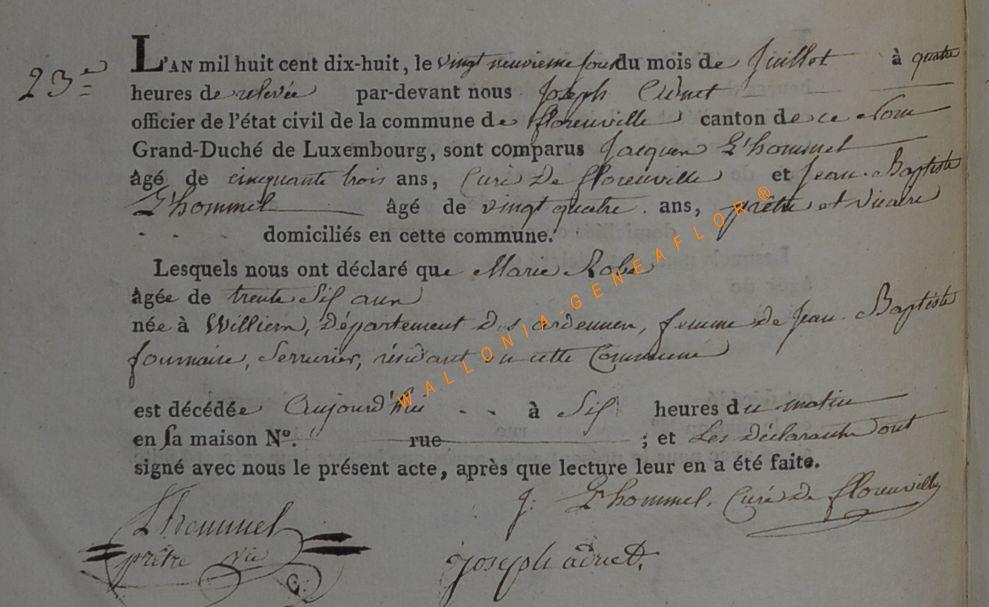 23e
L'AN mil huit cent dix-huit, le vingt neuvieme jour du mois de Juillot à quatre
heures de relevée par-devant nous Joseph
officier de l'état civil de la commune de florenville canton de ce Nom
Grand-Duché de Luxembourg, sont comparus Jacques L'hommel
âgé de cinquante trois ans, Curé De florenville et Jean-Baptiste
L'hommel âgé de vingt quatre ans, prêtre et vicaire
domiciliés en cette commune.
Lesquels nous ont déclaré que Marie Robe
âgée de trente Six ans
née à Williers, Département des ardennes, femme de Jean-Baptiste
Serrurier, résidant en cette Commune
est décédée Aujourd'hui à Six heures du matin
en sa maison N°. rue ; et Les Déclarants ont
signé avec nous le présent acte, après que lecture leur en a été faite.
J. L'hommel, Curé De florenville
L'hommel
prêtre vic
joseph
WALLONIA-GENEAFLOR®